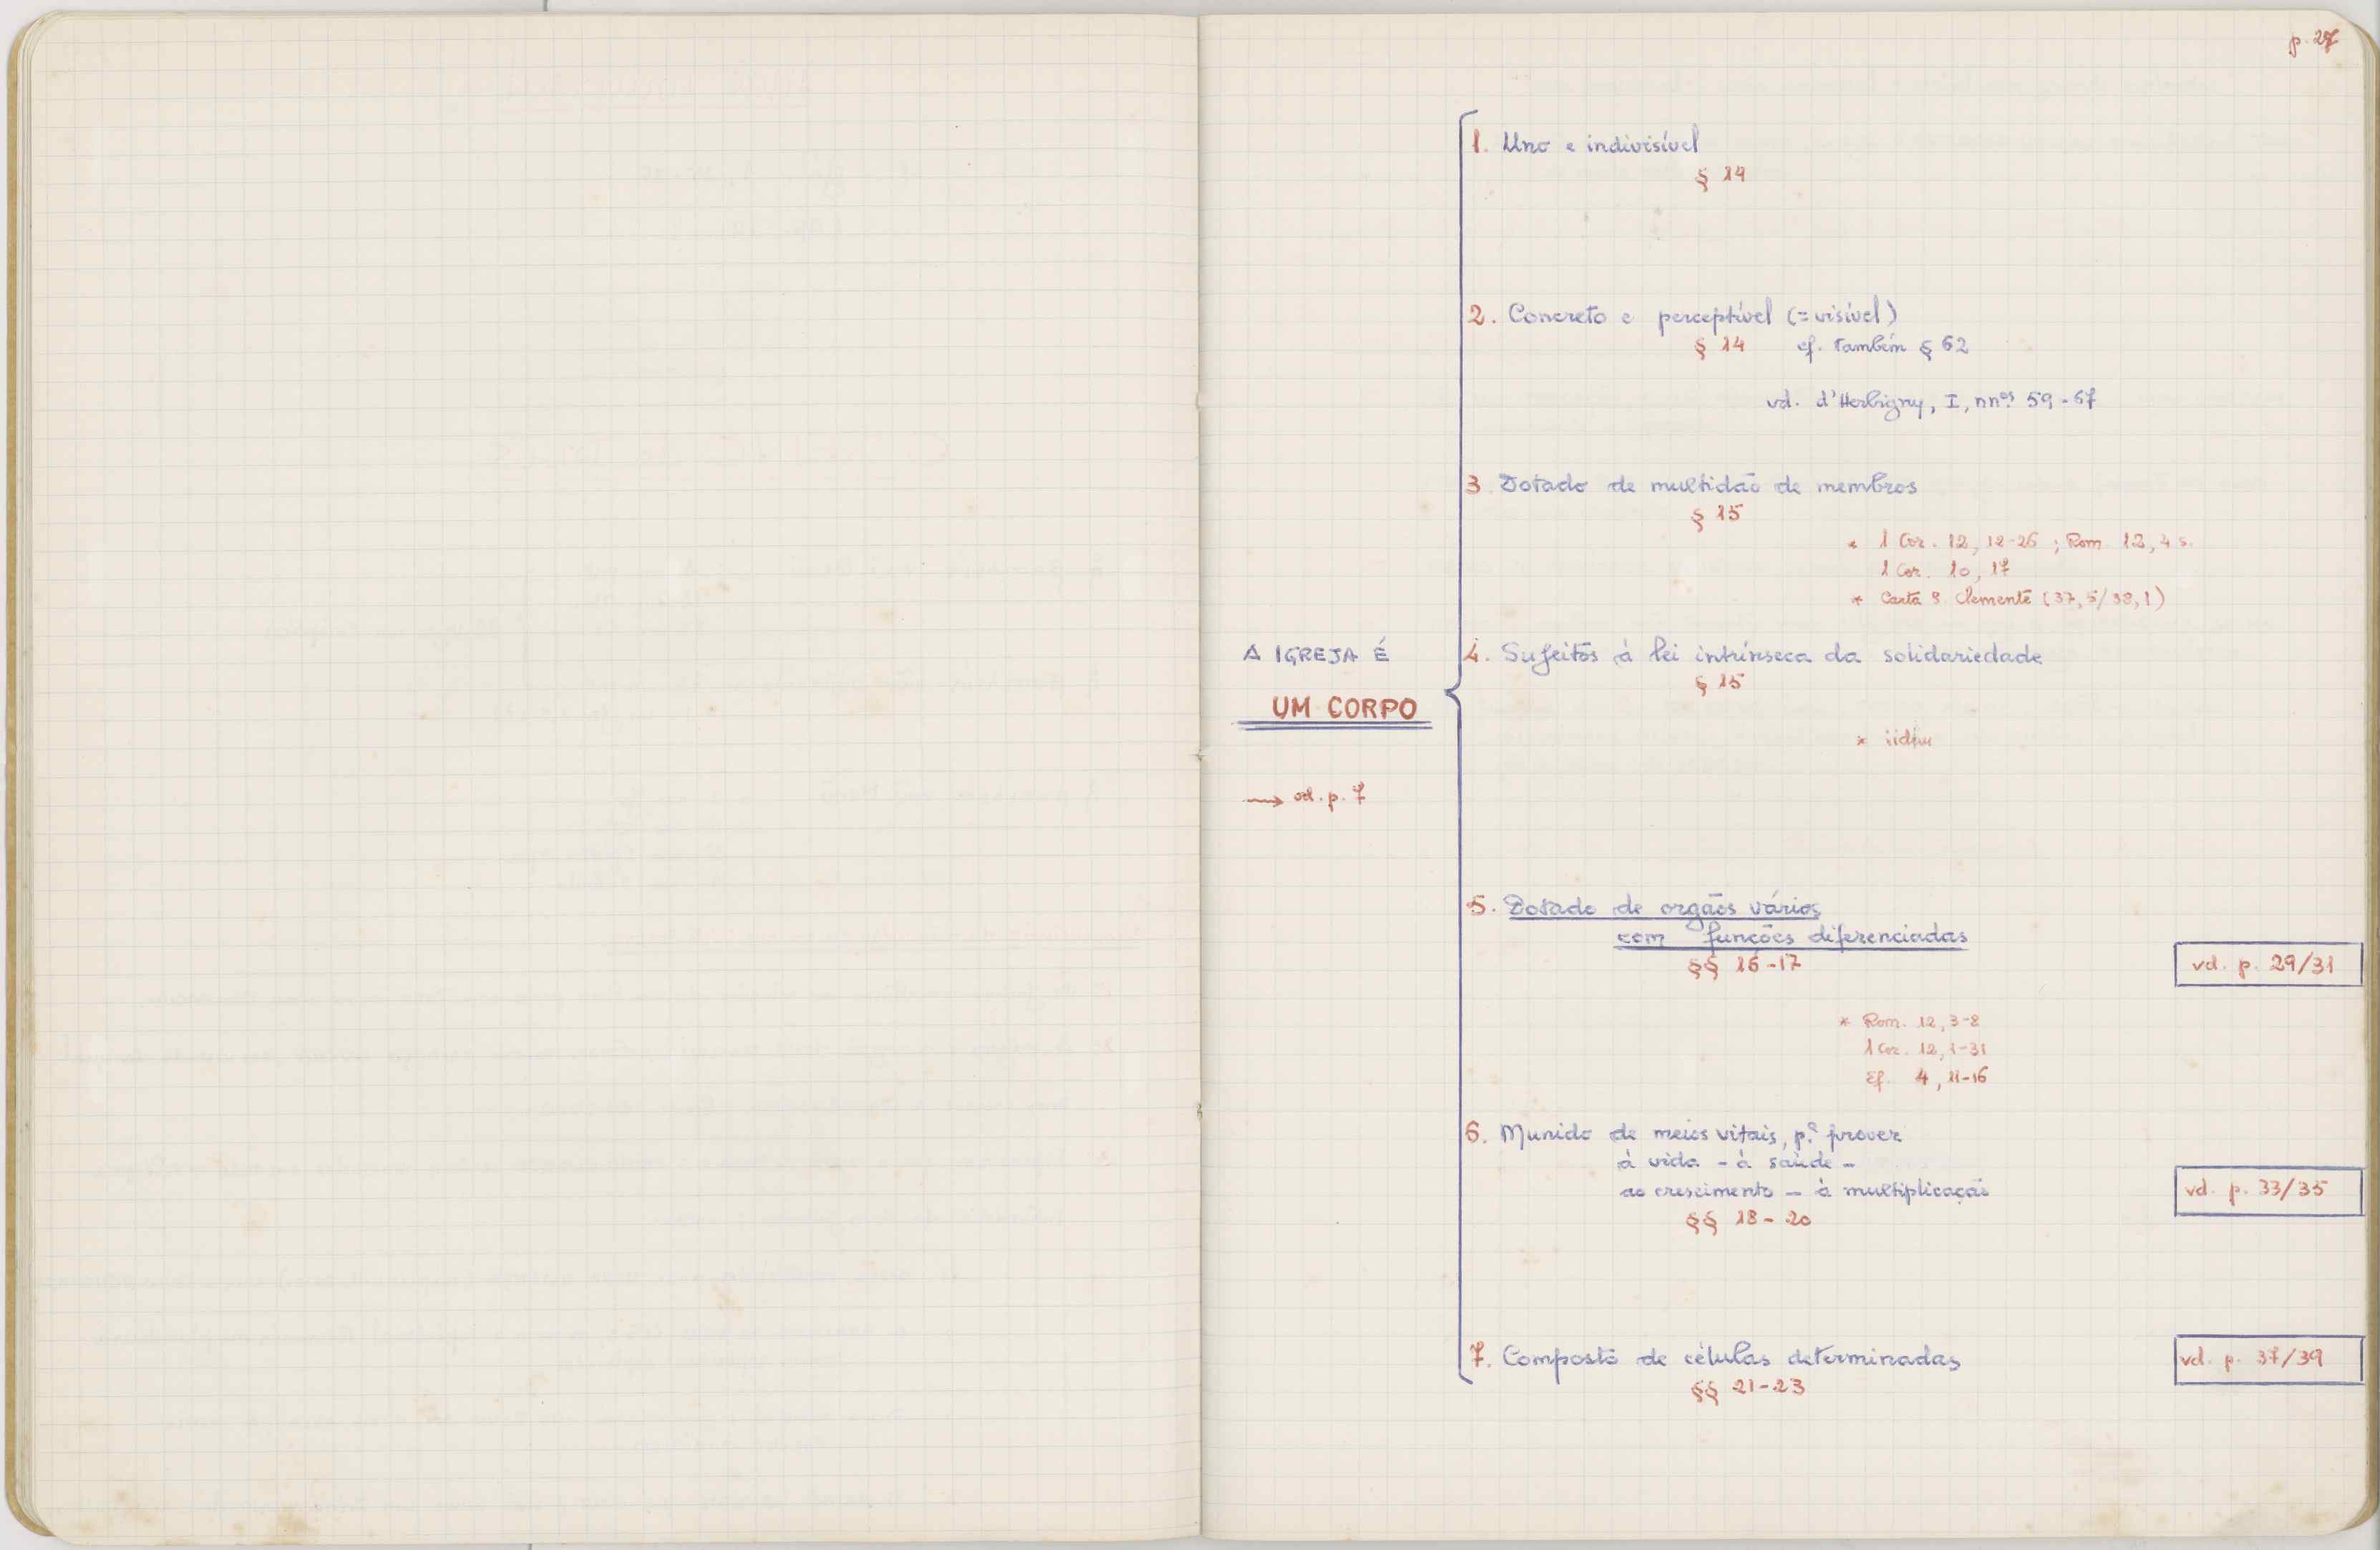 p. 27
1. Uno e indivisível
§ 14
2. Concreto e perceptível (= visível)
§ 14 cf. também § 62
vd. d'Herbigny, I, nnos 59-67
3. Dotado de multidão de membros
§ 15
* 1 Cor. 12, 12-26 ; Rom. 12, 4 s.
1 Cor. 10, 17
* Carta S. Clemente (37, 5/38, 1)
A IGREJA É
UM CORPO
→ vd. p. 7
4. Sujeitos à lei intrínseca da solidariedade
§ 15
* iidem
5. Dotado de orgãos vários
com funções diferenciadas
§§ 16-17
vd. p. 29/31
* Rom. 12, 3-8
1 Cor. 12, 1-31
Ef. 4, 11-16
6. Munido de meios vitais, p.ª prover
à vida - à saúde -
ao crescimento - à multiplicação
§§ 18 - 20
vd. p. 33/35
7. Composto de células determinadas
§§ 21-23
vd. p. 37/39